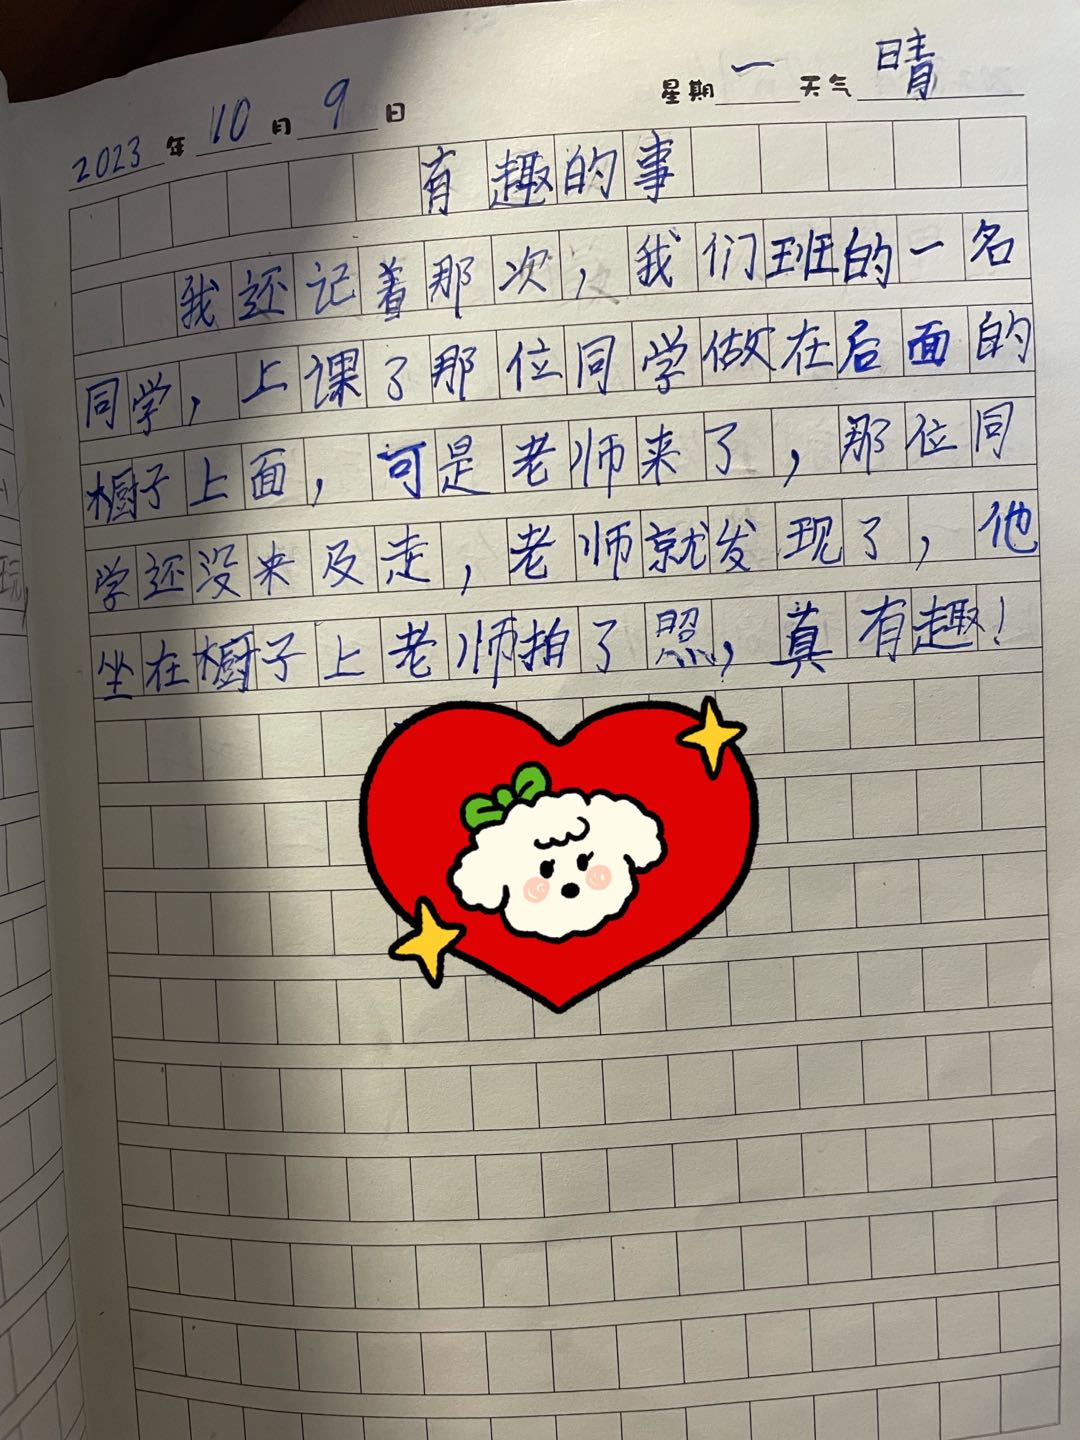 2023年10月9日 星期一天气晴
有趣的事
我还记着那次，我们班的一名
同学，上课了那位同学做在后面的
橱子上面，可是老师来了，那位同
学还没来及走，老师就发现了，他
坐在橱子上老师拍了照，真有趣！